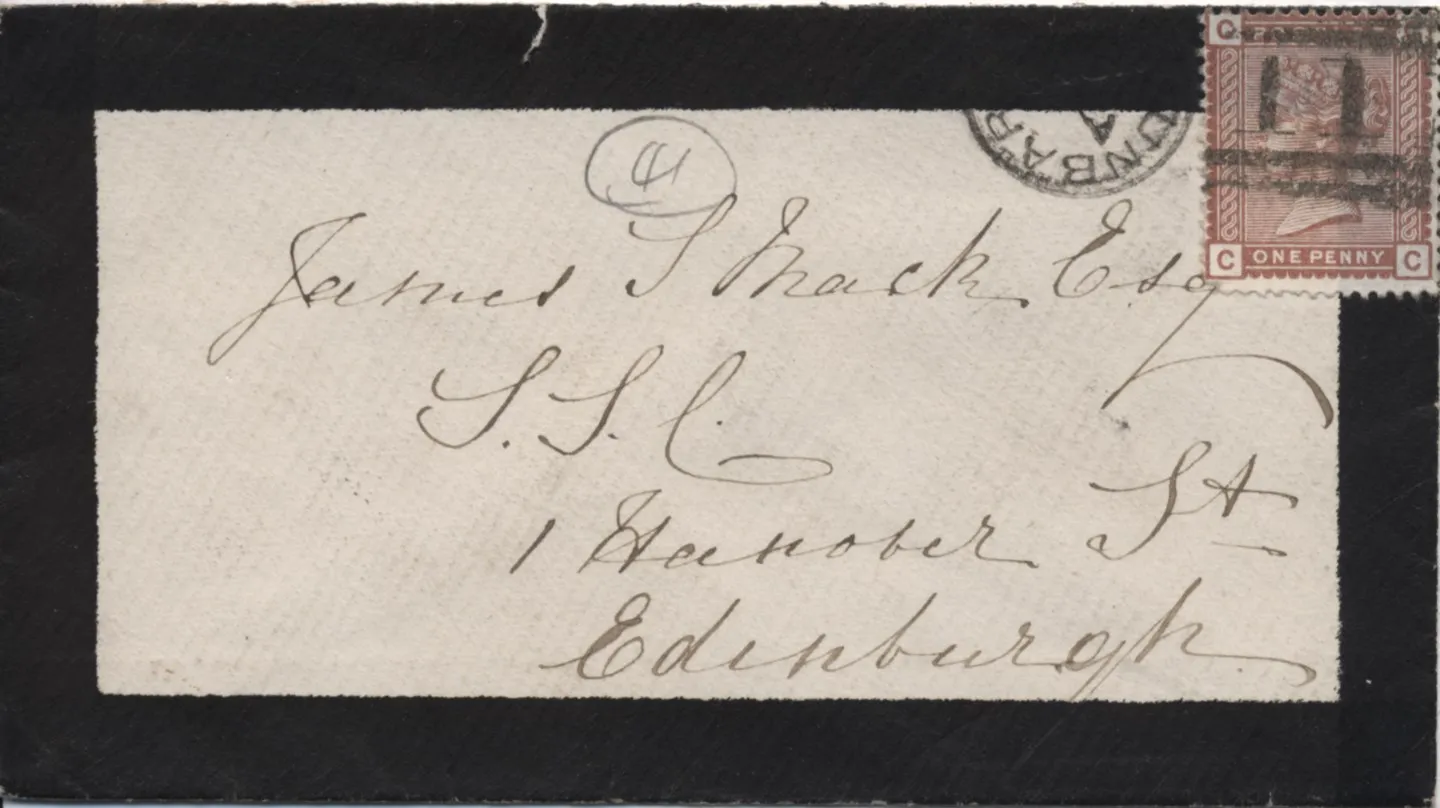 Q
ONE PENNY
C C
DUNBAR
A
4
James S Mack Esq
S.S.C.
1 Hanover St
Edinburgh